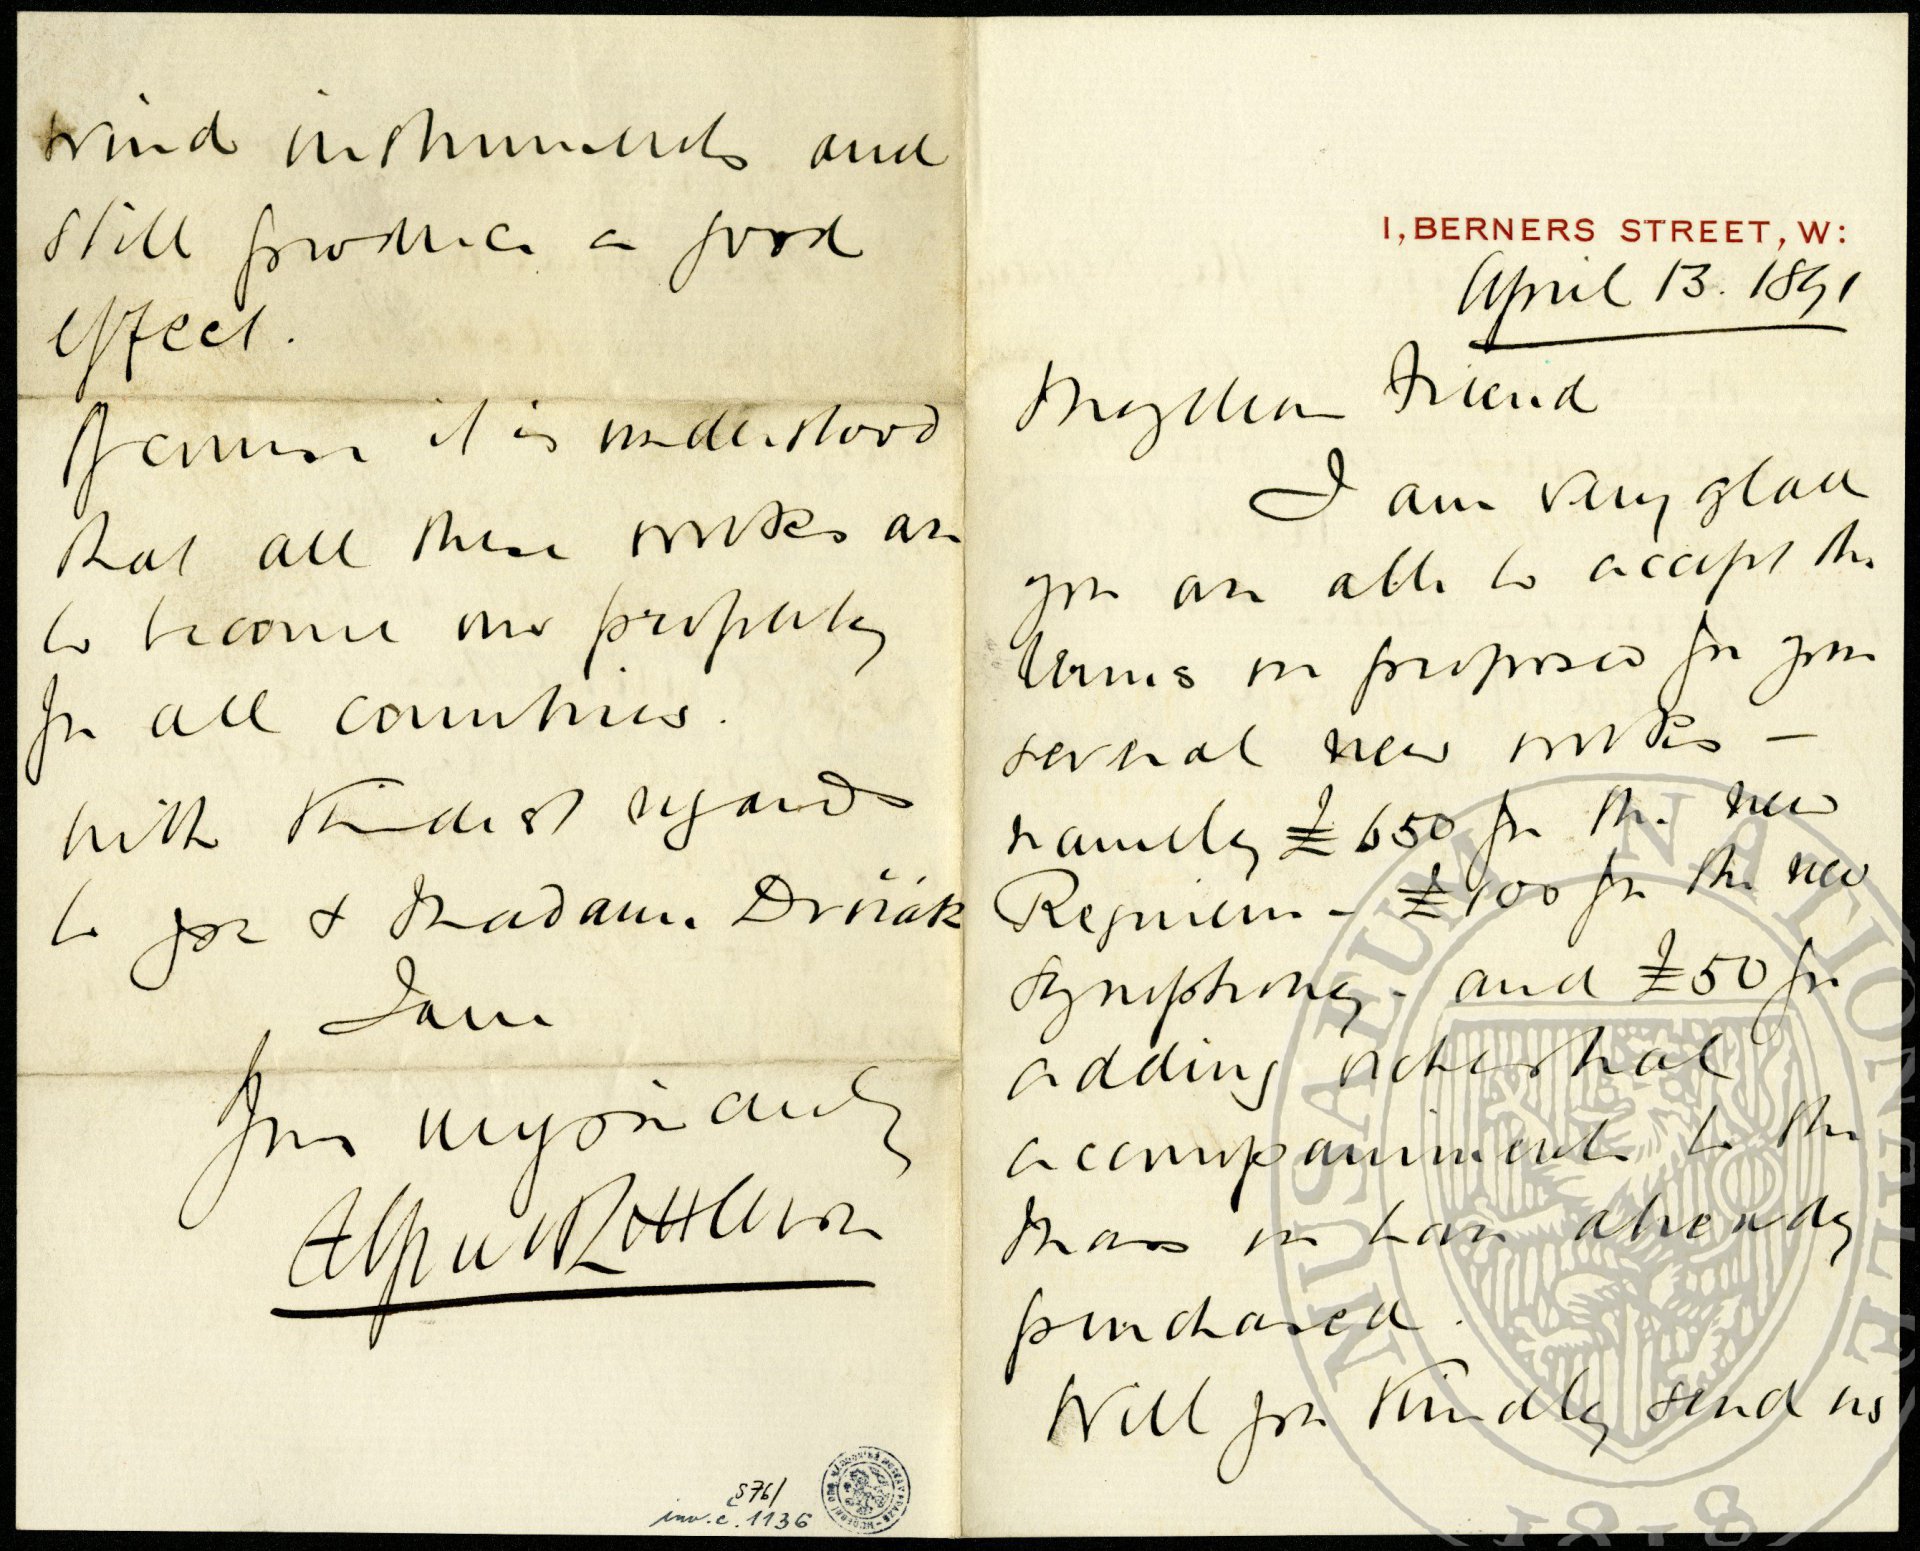 1, BERNERS STREET, W:
April 13. 1891
My dear Friend
I am very glad
you are able to accept the
terms we proposed for your
several new works —
namely £650 for the new
Requiem - £100 for the new
Symphony - and £50 for
adding orchestral
accompaniments to the
Mass we have already
purchased.
Will you kindly send us
wind instruments and
still produce a good
effect.
Of course it is understood
that all these works are
to become our property
for all countries.
With kindest regards
to you & Madame Dvořák
I am
Yours very sincerely
Alfred H Littleton
S 76/
inv. č. 1136
MUSAEUM NATIONALE
1818